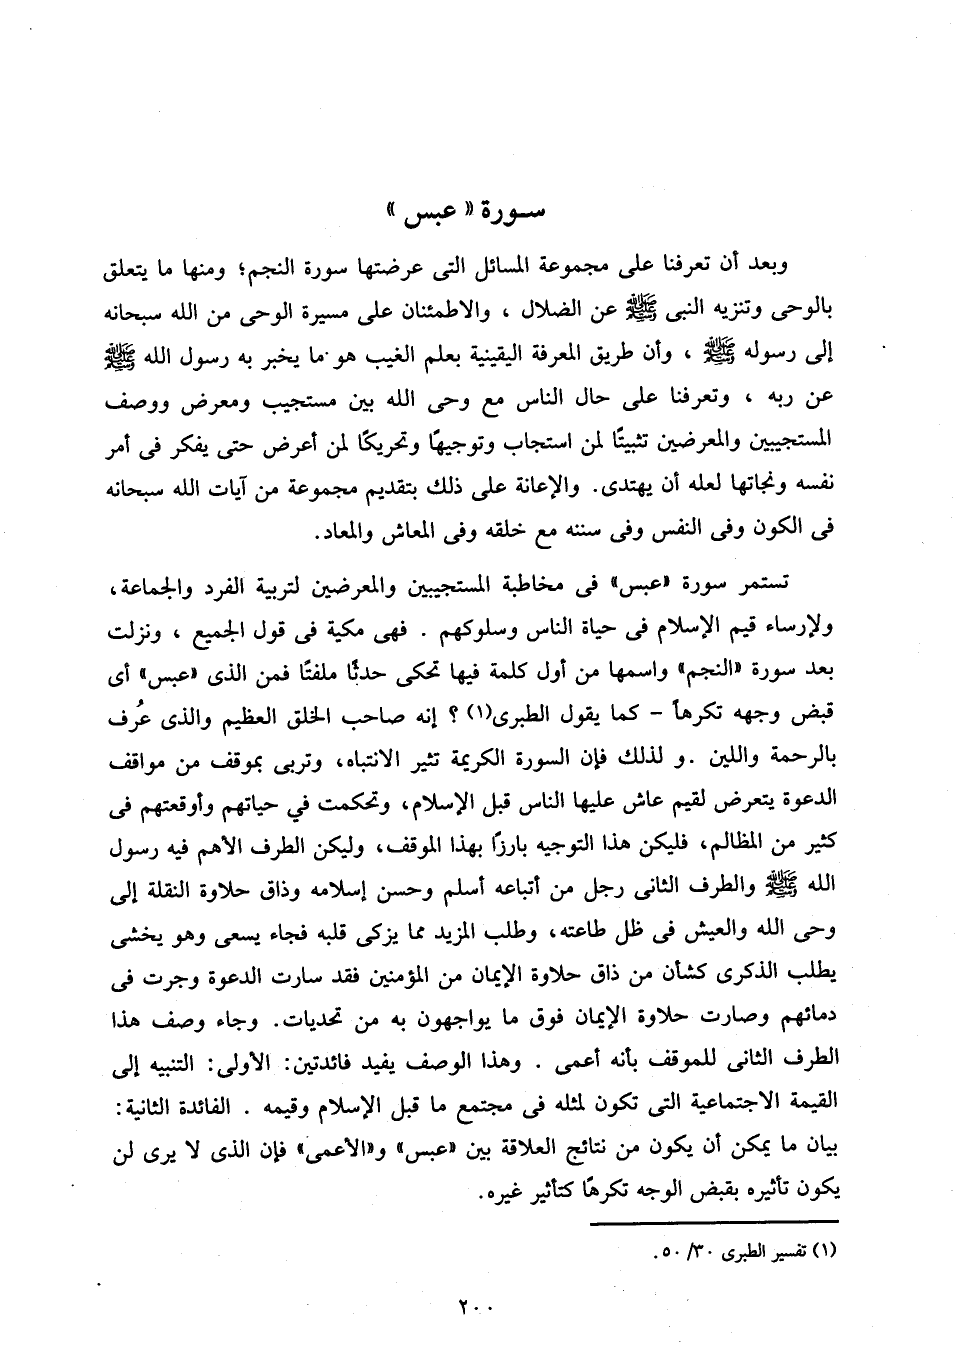 سورة « عبس »
وبعد أن تعرفنا على مجموعة المسائل التى عرضتها سورة النجم؛ ومنها ما يتعلق
بالوحى وتنزيه النبى ﷺ عن الضلال ، والاطمئنان على مسيرة الوحى من الله سبحانه
إلى رسوله ﷺ ، وأن طريق المعرفة اليقينية بعلم الغيب هو ما يخبر به رسول الله ﷺ
عن ربه ، وتعرفنا على حال الناس مع وحى الله بين مستجيب ومعرض ووصف
المستجيبين والمعرضين تثبيتًا لمن استجاب وتوجيهًا وتحريكًا لمن أعرض حتى يفكر فى أمر
نفسه ونجاتها لعله أن يهتدى. والإعانة على ذلك بتقديم مجموعة من آيات الله سبحانه
فى الكون وفى النفس وفى سننه مع خلقه وفى المعاش والمعاد.
تستمر سورة «عبس» فى مخاطبة المستجيبين والمعرضين لتربية الفرد والجماعة،
ولإرساء قيم الإسلام فى حياة الناس وسلوكهم . فهى مكية فى قول الجميع ، ونزلت
بعد سورة «النجم» واسمها من أول كلمة فيها تحكى حدثًا ملفتًا فمن الذى «عبس» أى
قبض وجهه تكرهاً - كما يقول الطبرى(١) ؟ إنه صاحب الخلق العظيم والذى عُرف
بالرحمة واللين .و لذلك فإن السورة الكريمة تثير الانتباه، وتربى بموقف من مواقف
الدعوة يتعرض لقيم عاش عليها الناس قبل الإسلام، وتحكمت في حياتهم وأوقعتهم فى
كثير من المظالم، فليكن هذا التوجيه بارزًا بهذا الموقف، وليكن الطرف الأهم فيه رسول
الله ﷺ والطرف الثانى رجل من أتباعه أسلم وحسن إسلامه وذاق حلاوة النقلة إلى
وحى الله والعيش فى ظل طاعته، وطلب المزيد مما يزكى قلبه فجاء يسعى وهو يخشى
يطلب الذكرى كشأن من ذاق حلاوة الإيمان من المؤمنين فقد سارت الدعوة وجرت فى
دمائهم وصارت حلاوة الإيمان فوق ما يواجهون به من تحديات. وجاء وصف هذا
الطرف الثانى للموقف بأنه أعمى . وهذا الوصف يفيد فائدتين: الأولى: التنبيه إلى
القيمة الاجتماعية التى تكون لمثله فى مجتمع ما قبل الإسلام وقيمه . الفائدة الثانية:
بيان ما يمكن أن يكون من نتائج العلاقة بين «عبس» و«الأعمى» فإن الذى لا يرى لن
يكون تأثيره بقبض الوجه تكرهًا كتأثير غيره.
(١) تفسير الطبرى ٣٠/ ٥٠.
٢٠٠